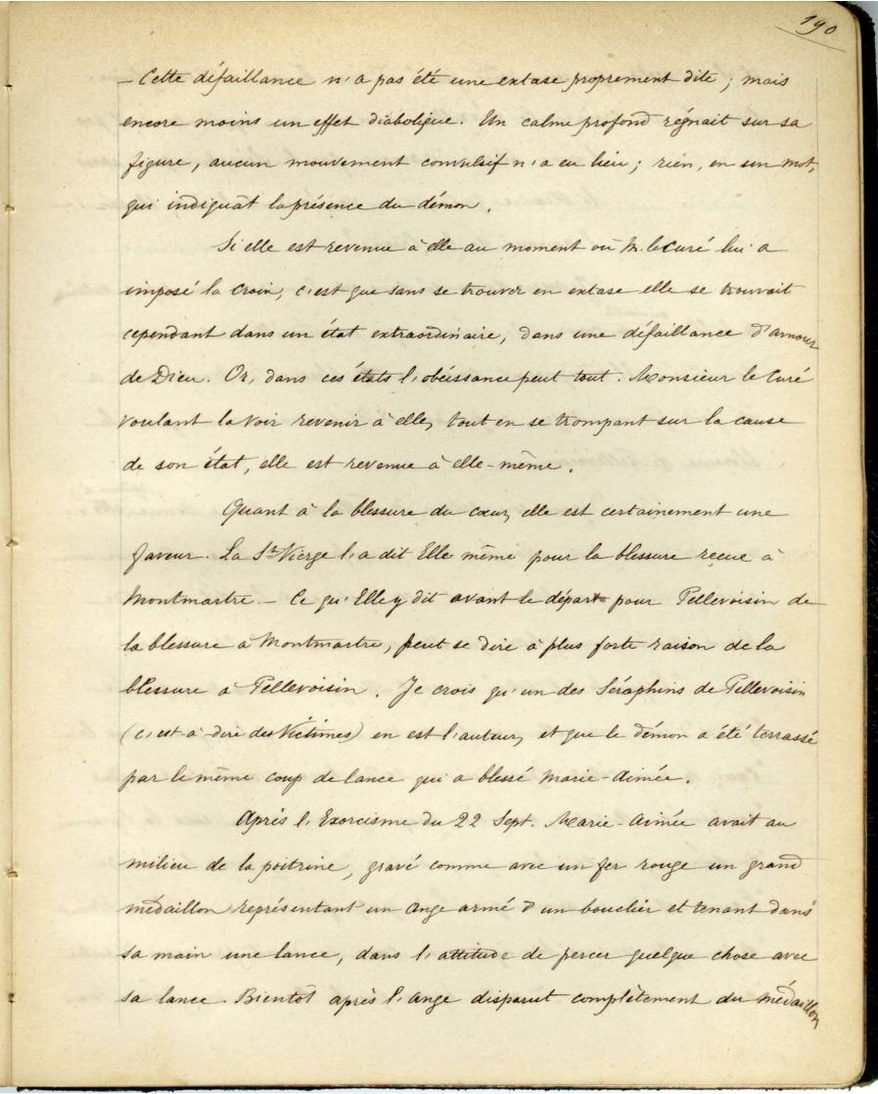 190
– Cette défaillance n'a pas été une extase proprement dite ; mais
encore moins un effet diabolique. Un calme profond régnait sur sa
figure, aucun mouvement convulsif n'a eu lieu ; rien, en un mot,
qui indiquât la présence du démon.
Si elle est revenue à elle au moment où M. le Curé lui a
imposé la Croix, c'est que sans se trouver en extase elle se trouvait
cependant dans un état extraordinaire, dans une défaillance d'amour
de Dieu. Or, dans ces états l'obéissance peut tout. Monsieur le Curé
voulant la voir revenir à elle, tout en se trompant sur la cause
de son état, elle est revenue à elle-même.
Quant à la blessure du cœur, elle est certainement une
faveur. La Ste Vierge l'a dit Elle même pour la blessure reçue à
Montmartre. – Ce qu'Elle y dit avant le départ pour Pellevoisin de
la blessure à Montmartre, peut se dire à plus forte raison de la
blessure à Pellevoisin. Je crois qu'un des Séraphins de Pellevoisin
(c'est à dire des Victimes) en est l'auteur, et que le démon a été terrassé
par le même coup de lance qui a blessé Marie-Aimée.
Après l'Exorcisme du 22 Sept. Marie-Aimée avait au
milieu de la poitrine, gravé comme avec un fer rouge un grand
médaillon représentant un Ange armé d'un bouclier et tenant dans
sa main une lance, dans l'attitude de percer quelque chose avec
sa lance. Bientôt après l'Ange disparut complètement du médaillon